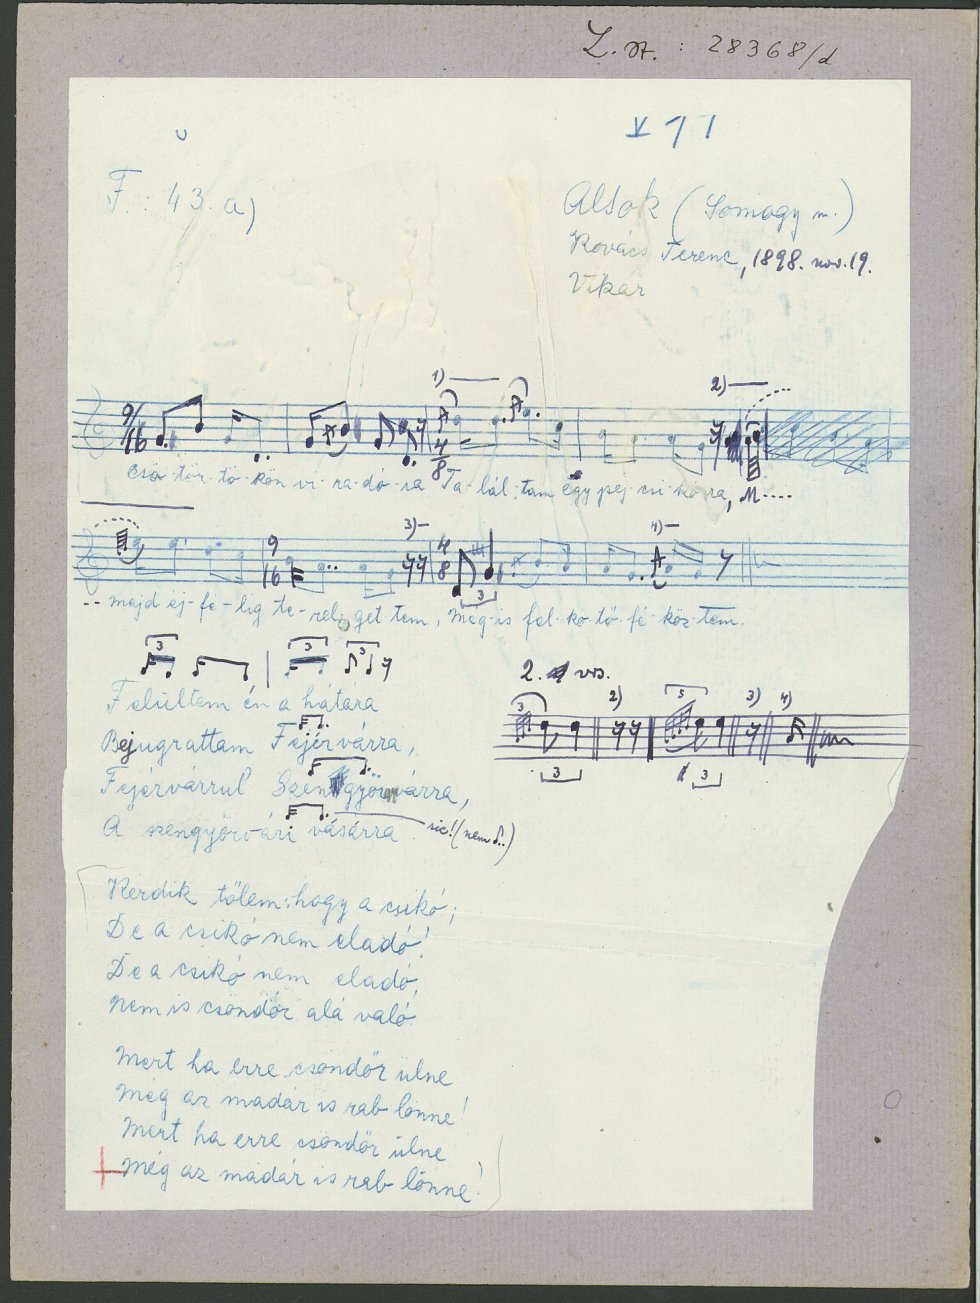 L. sz. : 28368/d
V 11
F : 43. a)
Alsok (Somogy m.)
Kovács Ferenc, 1898. nov. 19.
Vikár
1) 2)
9/16 4/8
Csö-tör-tö-kön vi-ra-dó-ra Ta-lál-tam egy pej csi-kóra, M.....
3) 4)
9 16 4 8
-- majd éj-fé-lig te-rel-get-tem, Még-is fel-ko-tó-fé-köz-tem.
3 3 3 3
Felültem én a hátára
2. vrs.
3 2) 5 3) 4)
Bejugrattam Fejérvárra,
3 3
Fejérvárrul Szentgyörgyvárra,
A szengyörvári vásárra sic! (nem ♫.)
Kerdik tőlem: hogy a csikó;
De a csikó nem eladó!
De a csikó nem eladó,
Nem is csöndőr alá való.
Mert ha erre csöndőr ülne
Még az madár is rab lönne!
Mert ha erre csöndőr ülne
Még az madár is rab lönne!